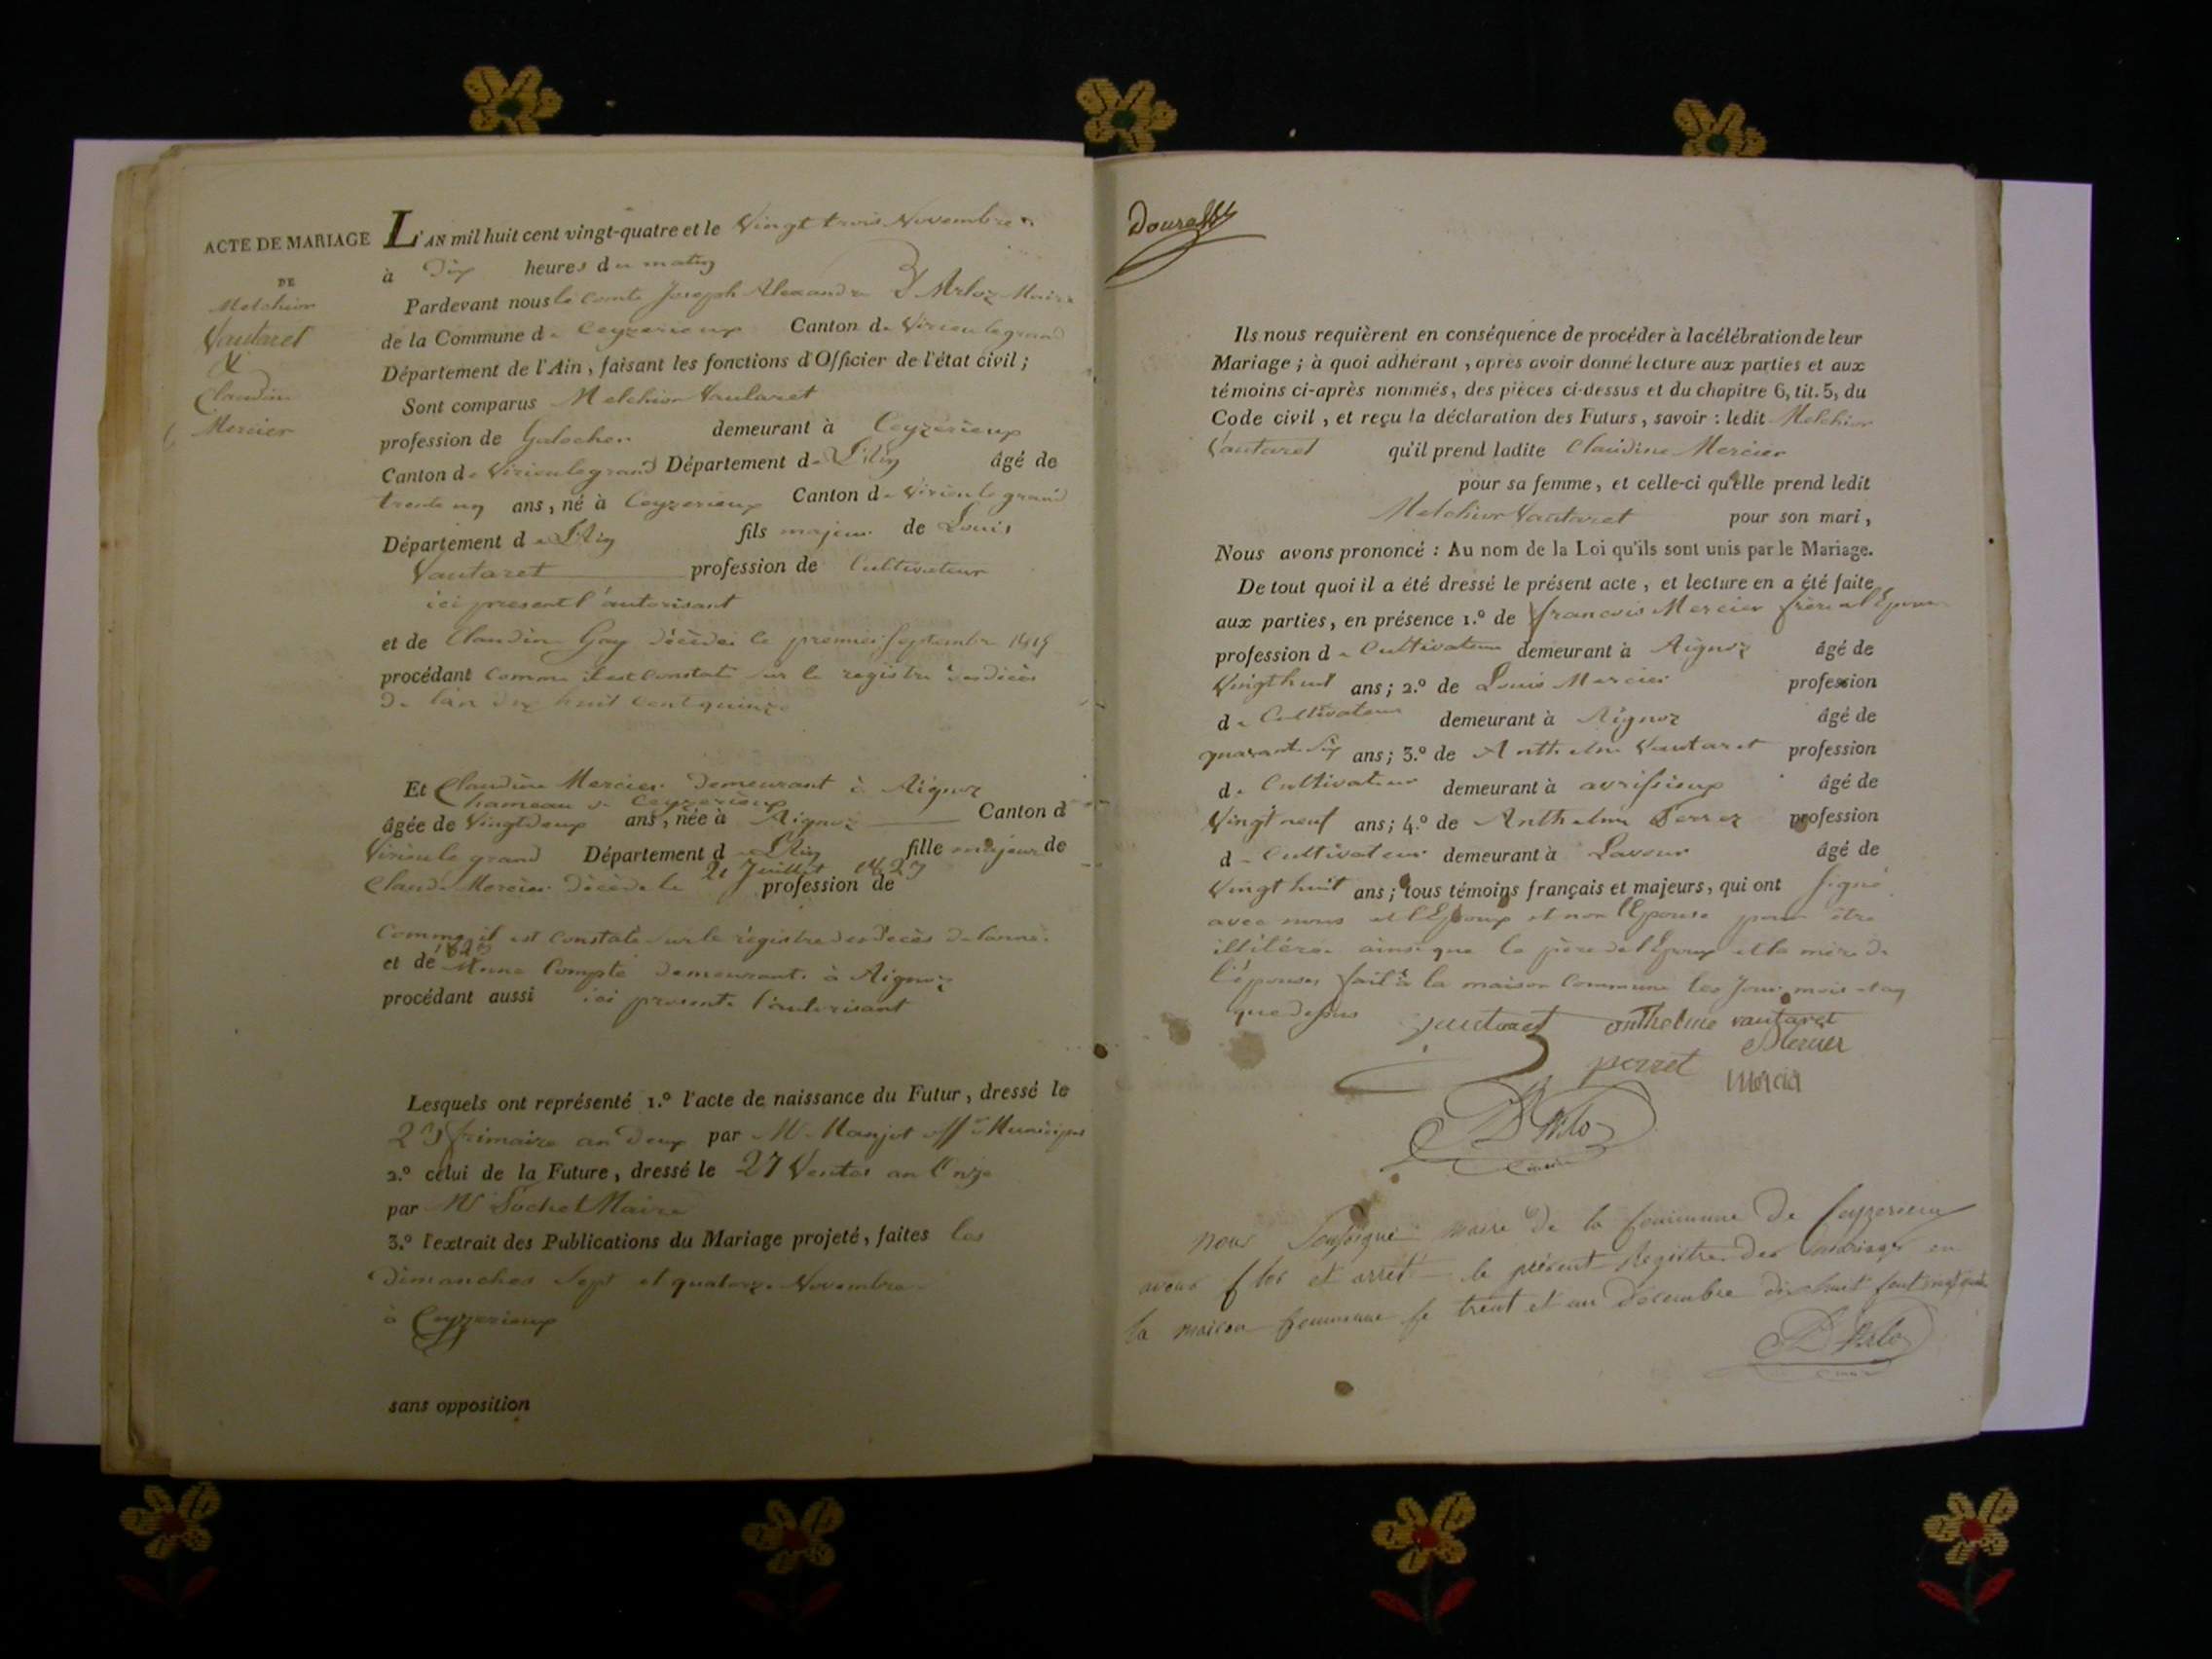 ACTE DE MARIAGE
DE
Melchior
Vautaret
&
Claudine
Mercier
L'AN mil huit cent vingt-quatre et le Vingt trois Novembre
à Dix heures du matin
Pardevant nous le comte Joseph Alexandre D'Arloz Maire
de la Commune de Ceyzerieux Canton de Virieu legrand
Département de l'Ain, faisant les fonctions d'Officier de l'état civil;
Sont comparus Melchior Vautaret
profession de Galocher demeurant à Ceyzerieux
Canton de Virieulegrand Département de L'Ain âgé de
trente un ans, né à Ceyzerieux Canton de Virieu le grand
Département de L'Ain fils majeur de Louis
Vautaret profession de Cultivateur
ici present l'autorisant
et de Claudine Gay décédée le premier Septembre 1815
procédant comme il est constaté sur le registre des décès
de l'an dix huit cent quinze
Et Claudine Mercier demeurant à Aignoz
hameau de Ceyzerieux
âgée de Vingt deux ans, née à Aignoz Canton d
Virieu le grand Département de L'Ain fille majeur de
Claude Mercier décédé le 21 Juillet 1823 profession de
Comme il est constaté sur le régistre des décès de l'année
1823
et de Anne Compte demeurant à Aignoz
procédant aussi ici presente l'autorisant
Lesquels ont représenté 1.º l'acte de naissance du Futur, dressé le
frimaire an deux par Mr Manjot off. Municipal
2.º celui de la Future, dressé le 27 Ventos an Onze
par Mr Maire
3.º l'extrait des Publications du Mariage projeté, faites les
Dimanches Sept et quatorze Novembre
à Ceyzerieux
sans opposition
Ils nous requièrent en conséquence de procéder à la célébration de leur
Mariage; à quoi adhérant, après avoir donné lecture aux parties et aux
témoins ci-après nommés, des pièces ci-dessus et du chapitre 6, tit. 5, du
Code civil, et reçu la déclaration des Futurs, savoir: ledit Melchior
Vautaret qu'il prend ladite Claudine Mercier
pour sa femme, et celle-ci qu'elle prend ledit
Melchior Vautaret pour son mari,
Nous avons prononcé: Au nom de la Loi qu'ils sont unis par le Mariage.
De tout quoi il a été dressé le présent acte, et lecture en a été faite
aux parties, en présence 1.º de francois Mercier frère de l'Epouse
profession de Cultivateur demeurant à Aignoz âgé de
Vingt huit ans; 2.º de Louis Mercier profession
de Cultivateur demeurant à Aignoz âgé de
quarante six ans; 3.º de Anthelme Vautaret profession
de Cultivateur demeurant à avrissieux âgé de
Vingt neuf ans; 4.º de Anthelme Perret profession
de Cultivateur demeurant à Lavour âgé de
Vingt huit ans; tous témoins français et majeurs, qui ont signé
avec nous et l'Epoux et non l'Epouse pour être
illitérée ainsi que le père de l'Epoux et la mère de
l'épouse, fait à la maison Commune les Jour mois et an
que dessus
vautaret anthelme vautaret
Mercier
perret Mercier
D'Arloz
maire
nous soussigné maire de la Commune de Ceyzerieu
avons clos et arreté le présent Registre des mariages en
la maison Commune le trent et un décembre dix huit cent vingt quatre
D'Arloz
maire